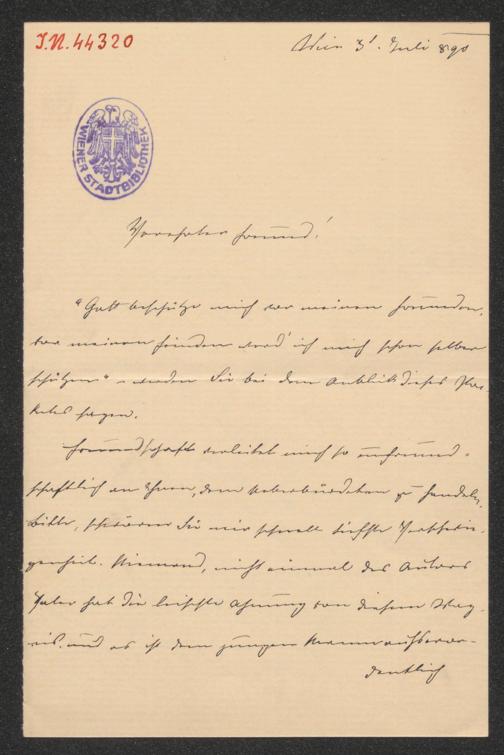 J.N. 44320
Wien 3t. Juli 890
WIENER STADTBIBLIOTHEK
Verehrter Freund!
"Gott beschütze mich vor meinen Freunden,
vor meinen Feinden werd' ich mich schon selber
schützen" – werden Sie bei dem Anblick dieses Pa-
ketes sagen.
Freundschaft verleitet mich so unfreund-
schaftlich an Ihnen, dem Ueberbürdeten zu handeln.
Bitte, schwören Sie mir schnell tiefste Verschwie-
genheit. Niemand, nicht einmal des Autors
Vater hat die leiseste Ahnung von diesem Wag-
nis. und es ist dem jungen Mann ausseror-
dentlich